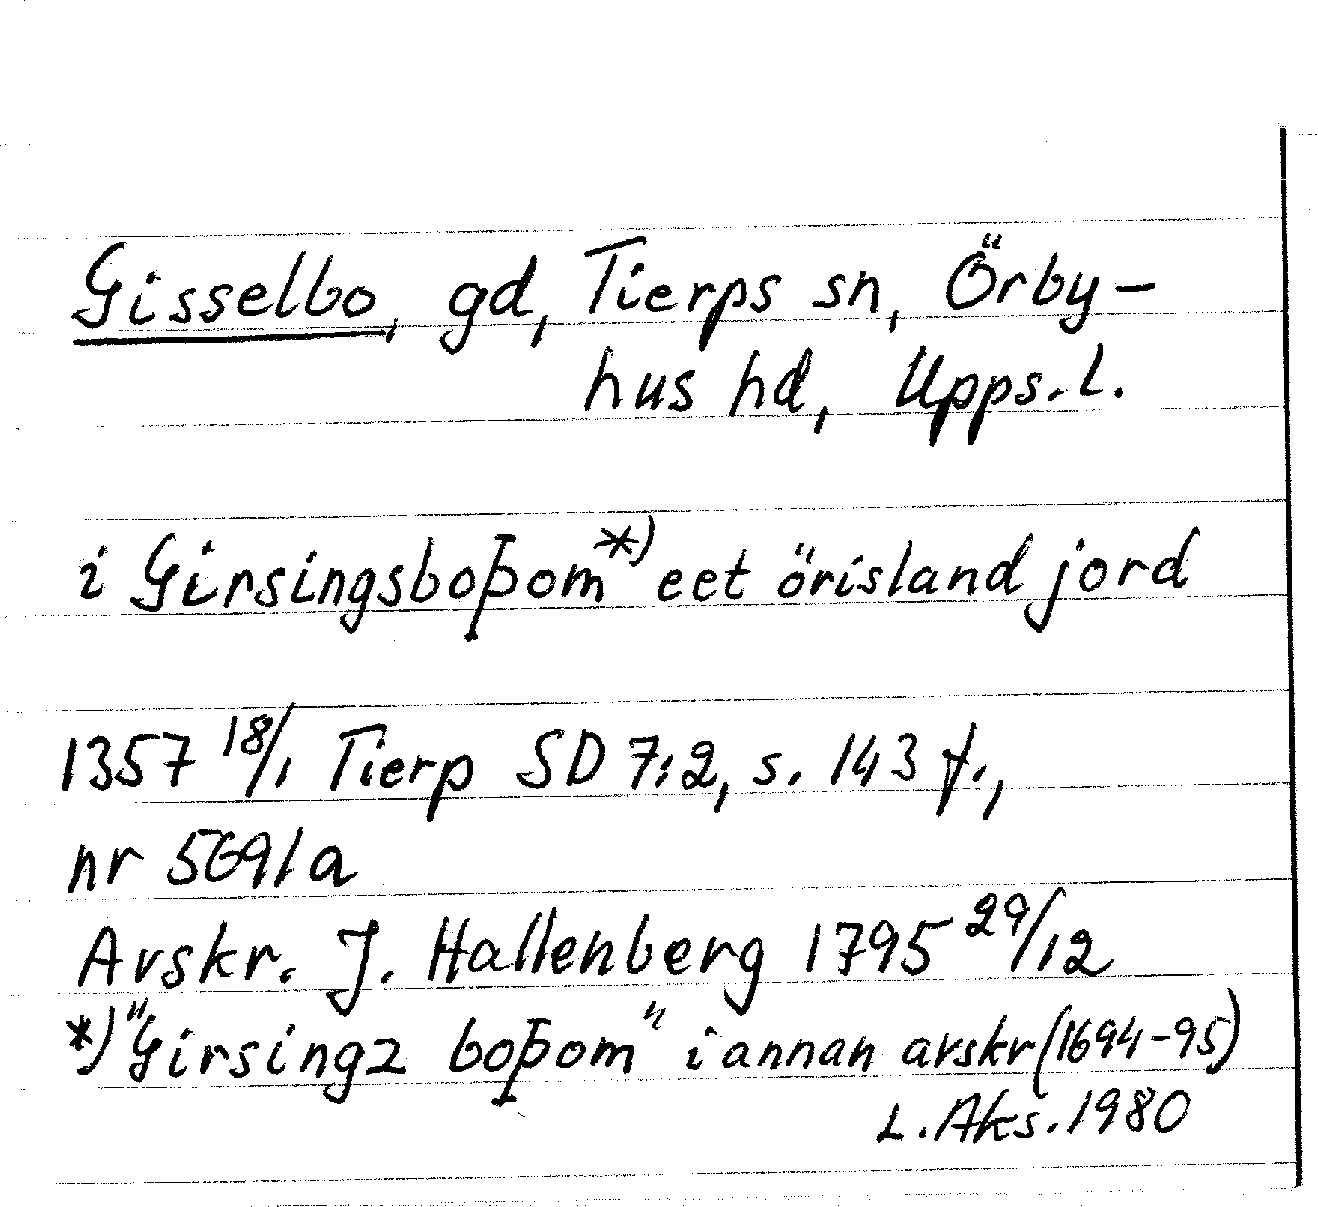 Gisselbo, gd, Tierps sn, Örby-
hus hd, Upps. l.
i Girsingsboþom*) eet örisland jord
1357 18/1 Tierp SD 7:2, s. 143 f.,
nr 5691a
Avskr. J. Hallenberg 1795 29/12
*) "Girsingz boþom" i annan avskr (1694-95)
L. Aks. 1980